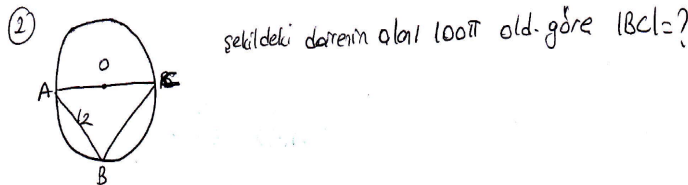 2
şekildeki dairenin alanı 100π old. göre |BC|=?
O
A
C
12
B